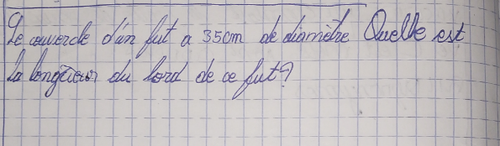 Le couvercle d'un fut a 35cm de diamètre Quelle est
la longueur du bord de ce fut?